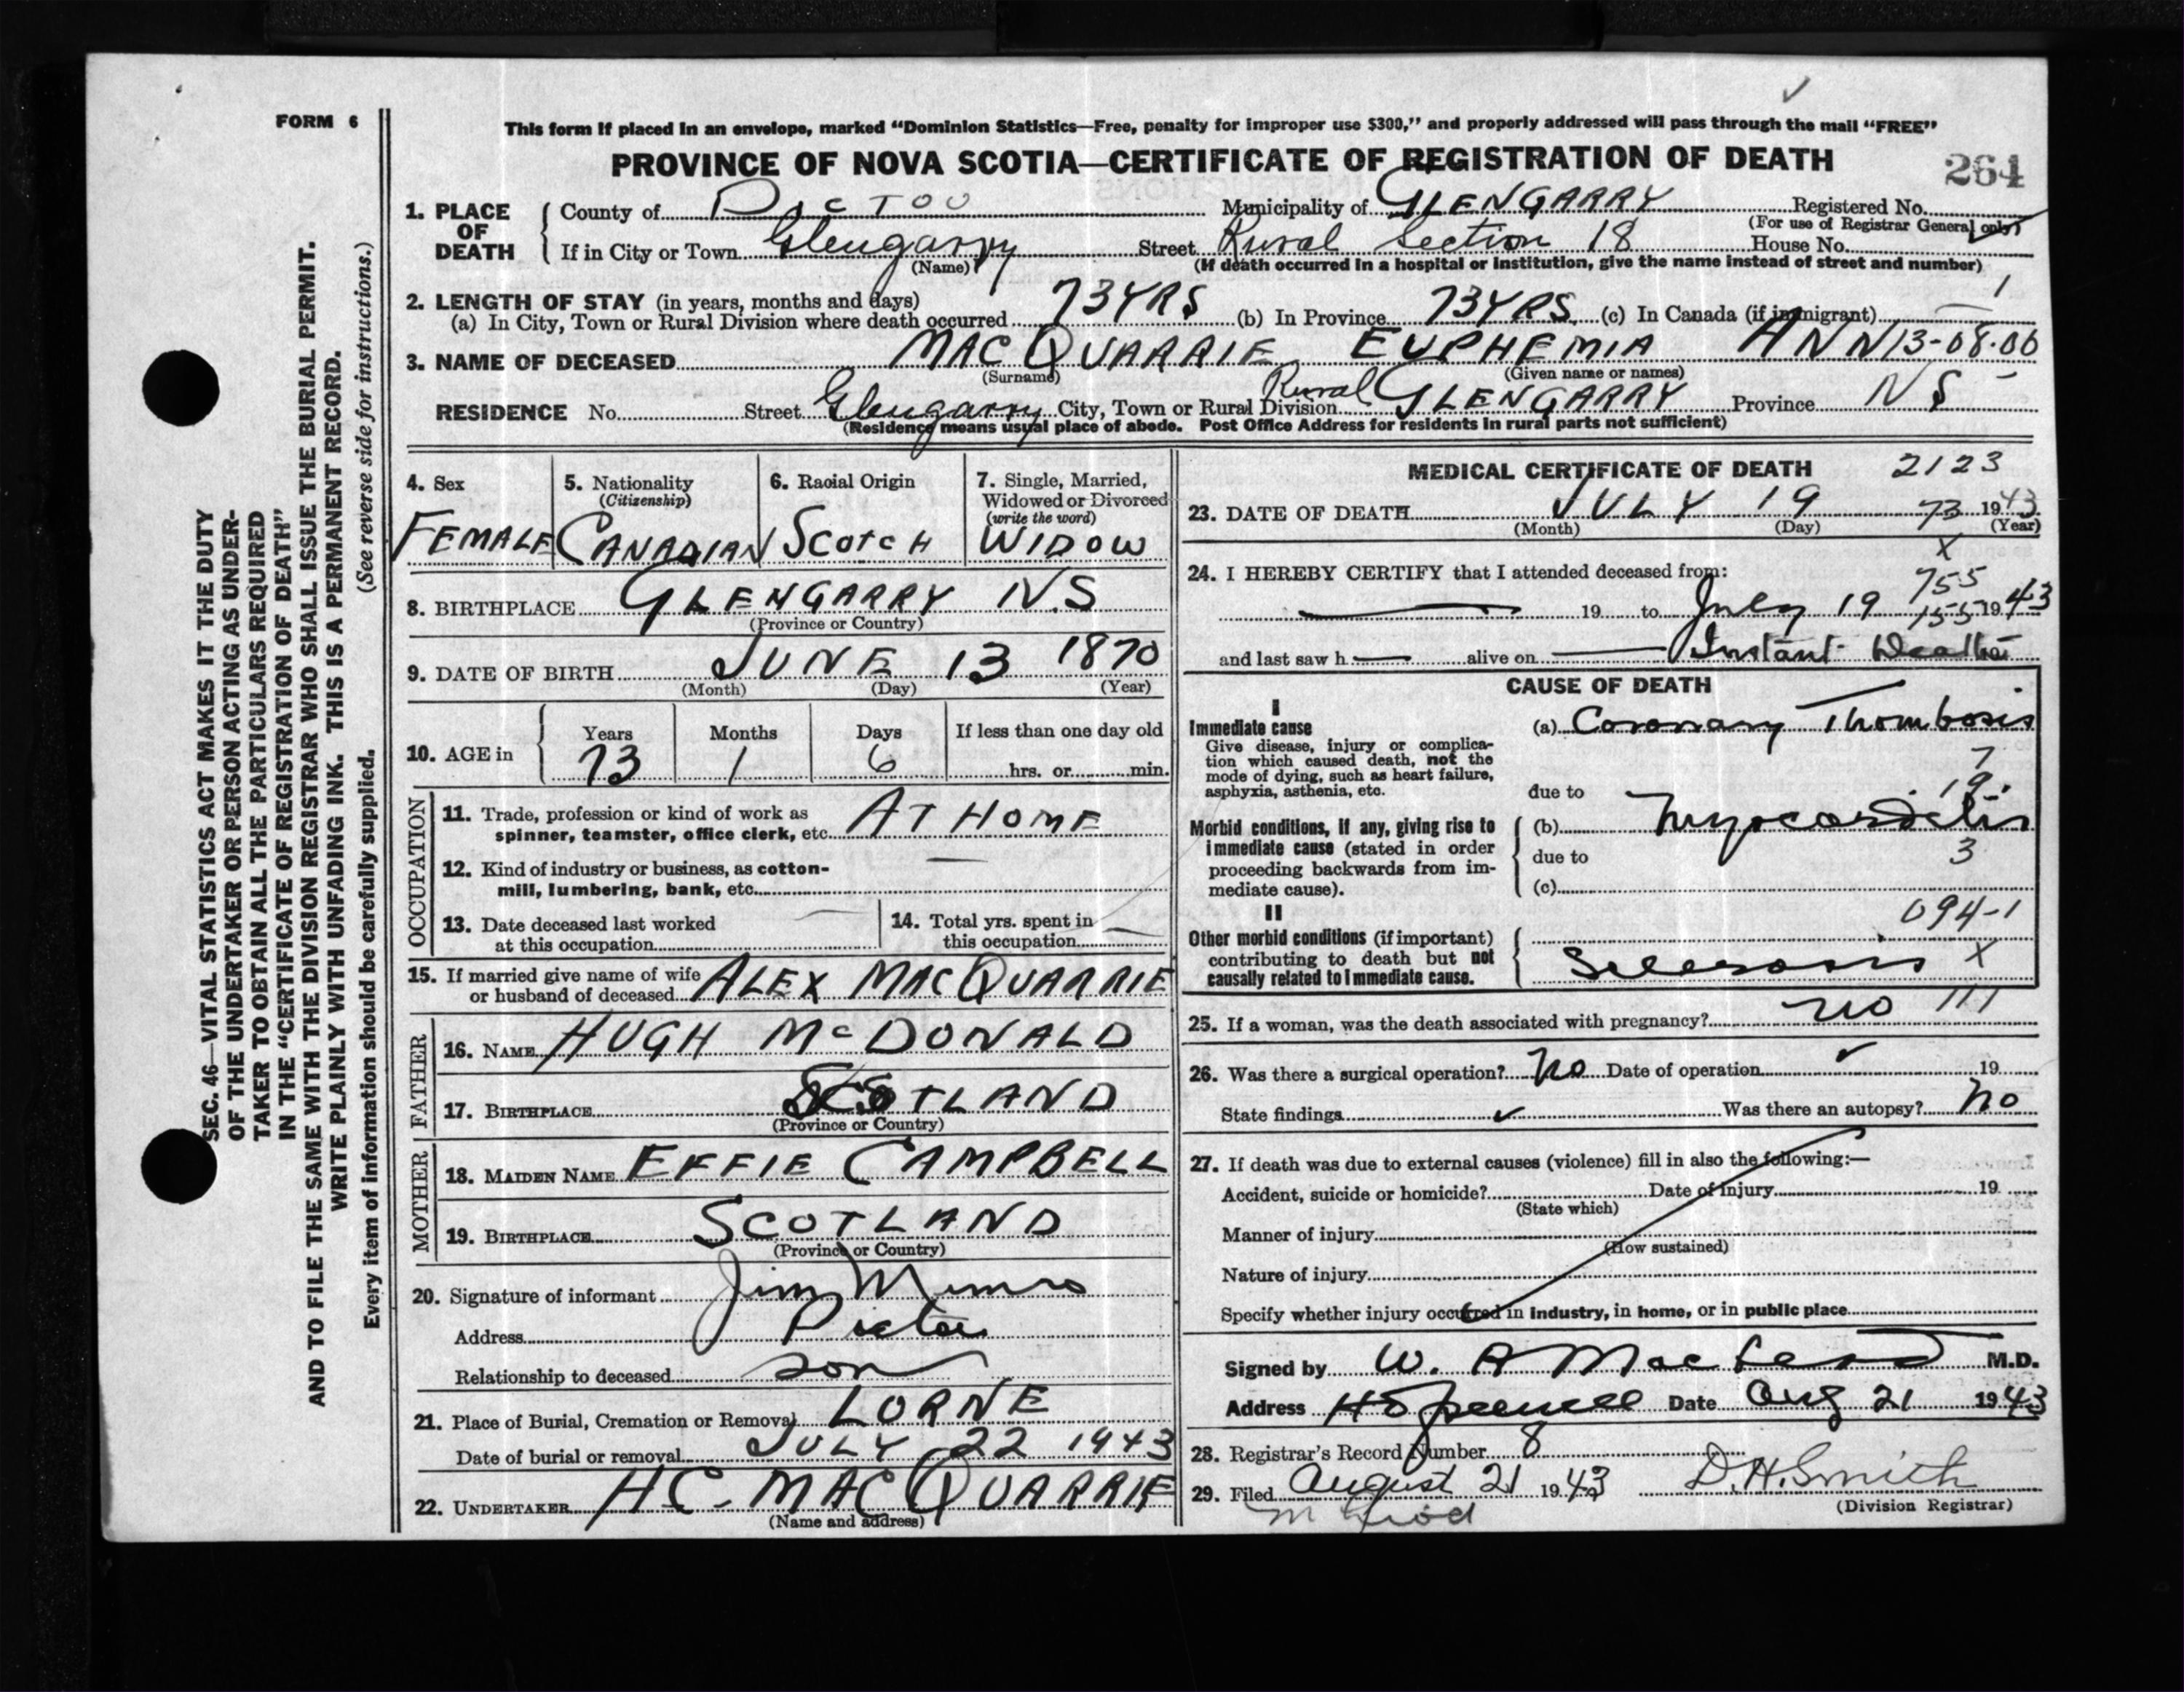 FORM 6
This form if placed in an envelope, marked “Dominion Statistics—Free, penalty for improper use $300,” and properly addressed will pass through the mail “FREE”
PROVINCE OF NOVA SCOTIA—CERTIFICATE OF REGISTRATION OF DEATH
264
1. PLACE OF DEATH
County of PICTOU Municipality of GLENGARRY Registered No.
(For use of Registrar General only)
If in City or Town Glengarry Street Rural Section 18 House No.
(Name) (If death occurred in a hospital or institution, give the name instead of street and number)
2. LENGTH OF STAY (in years, months and days)
(a) In City, Town or Rural Division where death occurred 73 YRS (b) In Province 73 YRS (c) In Canada (if immigrant) — 1
3. NAME OF DECEASED MAC QUARRIE EUPHEMIA ANN 13-08-06
(Surname) (Given name or names)
RESIDENCE No. Street Glengarry City, Town or Rural Division Rural GLENGARRY Province N S
(Residence means usual place of abode. Post Office Address for residents in rural parts not sufficient)
4. Sex FEMALE
5. Nationality (Citizenship) CANADIAN
6. Racial Origin SCOTCH
7. Single, Married, Widowed or Divorced (write the word) WIDOW
8. BIRTHPLACE GLENGARRY N.S
(Province or Country)
9. DATE OF BIRTH JUNE 13 1870
(Month) (Day) (Year)
10. AGE in Years 73 Months 1 Days 6 If less than one day old
hrs. or min.
OCCUPATION
11. Trade, profession or kind of work as spinner, teamster, office clerk, etc. AT HOME
12. Kind of industry or business, as cotton-
mill, lumbering, bank, etc. —
13. Date deceased last worked
at this occupation —
14. Total yrs. spent in
this occupation —
15. If married give name of wife
or husband of deceased ALEX MAC QUARRIE
FATHER
16. NAME HUGH McDONALD
17. BIRTHPLACE SCOTLAND
(Province or Country)
MOTHER
18. MAIDEN NAME EFFIE CAMPBELL
19. BIRTHPLACE SCOTLAND
(Province or Country)
20. Signature of informant Jim Munro
Address Pictou
Relationship to deceased son
21. Place of Burial, Cremation or Removal LORNE
Date of burial or removal JULY 22 1943
22. UNDERTAKER H C. MAC QUARRIE
(Name and address)
MEDICAL CERTIFICATE OF DEATH 2123
23. DATE OF DEATH JULY 19 73 1943
(Month) (Day) (Year)
X
24. I HEREBY CERTIFY that I attended deceased from:
755
— 19 to July 19 155 1943
and last saw h — alive on — Instant Death
CAUSE OF DEATH
I
Immediate cause
Give disease, injury or complica-
tion which caused death, not the
mode of dying, such as heart failure,
asphyxia, asthenia, etc.
(a) Coronary Thombosis
7
19
due to
Morbid conditions, if any, giving rise to
immediate cause (stated in order
proceeding backwards from im-
mediate cause).
(b) Myocarditis
due to 3
(c)
094-1
II
Other morbid conditions (if important)
contributing to death but not
causally related to immediate cause.
Sclerosis X
25. If a woman, was the death associated with pregnancy? no 111
26. Was there a surgical operation? No Date of operation 19
State findings Was there an autopsy? No
27. If death was due to external causes (violence) fill in also the following:—
Accident, suicide or homicide? Date of injury 19
(State which)
Manner of injury
(How sustained)
Nature of injury
Specify whether injury occurred in industry, in home, or in public place
Signed by W. A MacLeod M.D.
Address Hopewell Date Aug 21 1943
28. Registrar's Record Number 8
29. Filed August 21 1943 D.H. Smith
(Division Registrar)
SEC. 46—VITAL STATISTICS ACT MAKES IT THE DUTY
OF THE UNDERTAKER OR PERSON ACTING AS UNDER-
TAKER TO OBTAIN ALL THE PARTICULARS REQUIRED
IN THE “CERTIFICATE OF REGISTRATION OF DEATH”
AND TO FILE THE SAME WITH THE DIVISION REGISTRAR WHO SHALL ISSUE THE BURIAL PERMIT.
WRITE PLAINLY WITH UNFADING INK. THIS IS A PERMANENT RECORD.
Every item of information should be carefully supplied. (See reverse side for instructions.)